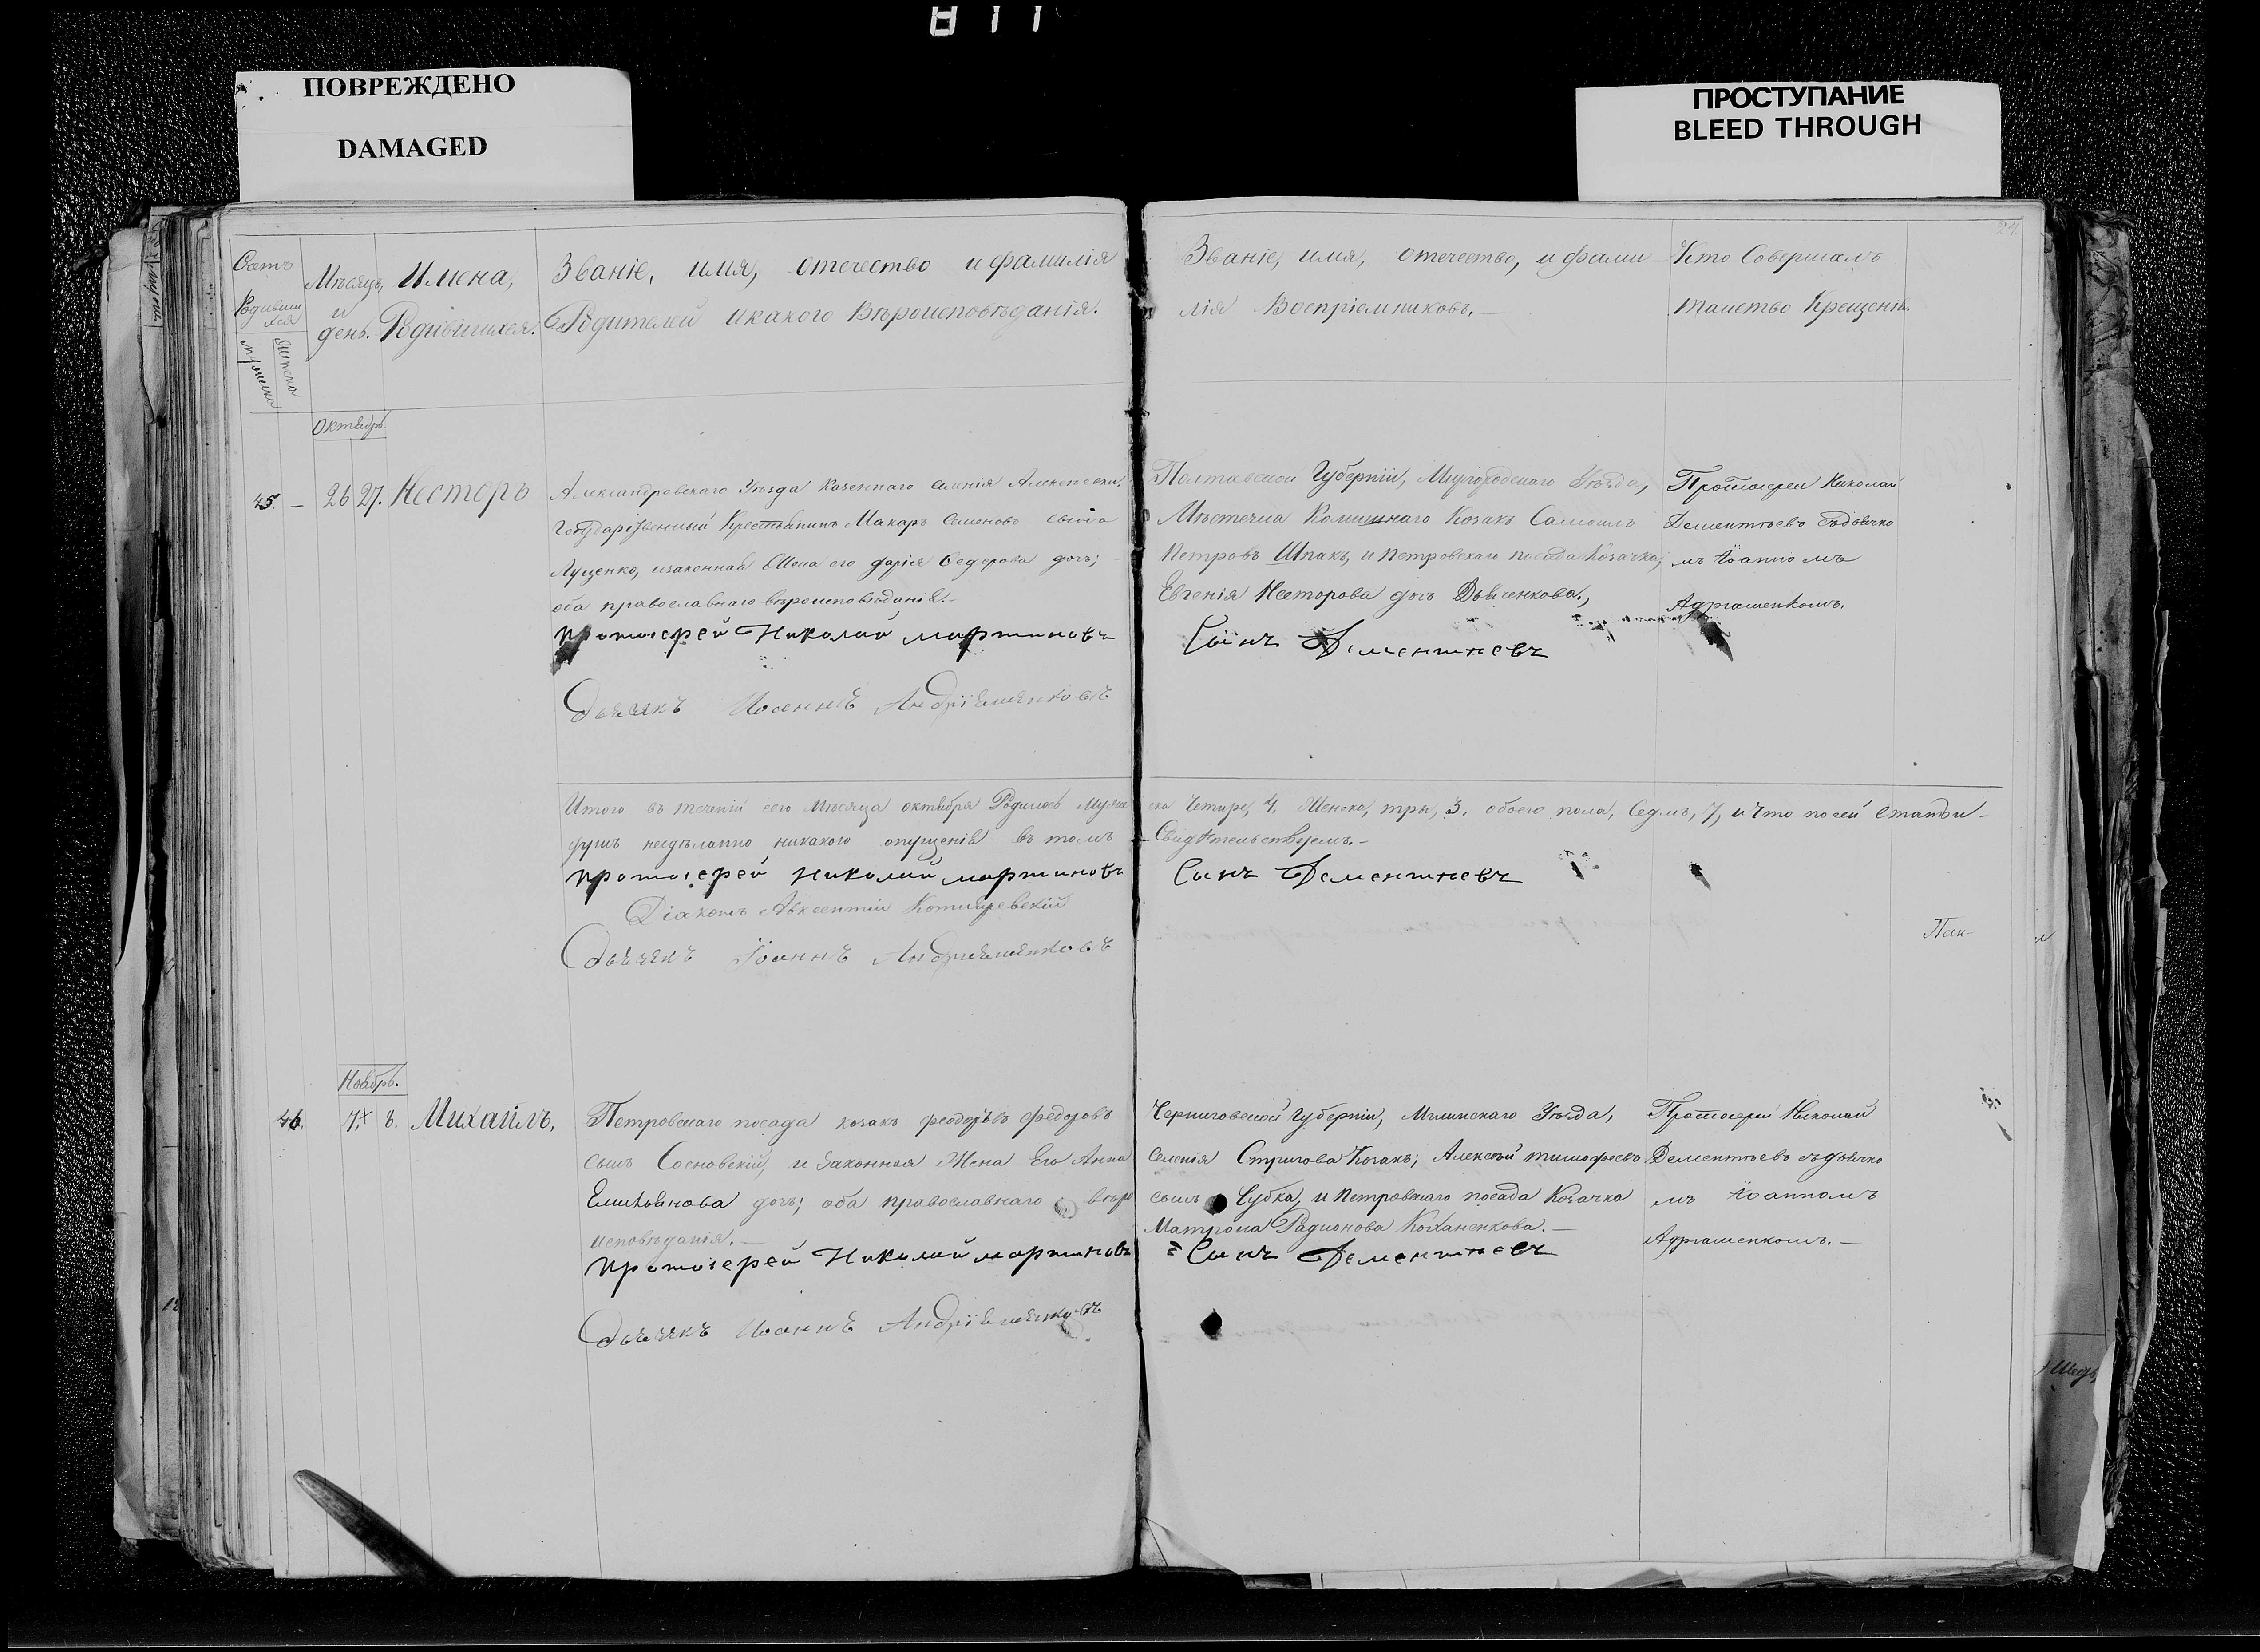 811
ПОВРЕЖДЕНО
DAMAGED
ПРОСТУПАНИЕ
BLEED THROUGH
Счетъ Родившихся
мужеска
женска
Мѣсяцъ и день.
Имена,
Родившихся.
Званіе, имя, отечество и фамилія
Родителей и какого Вѣроисповѣданія.
Званіе, имя, отечество, и фами-
лія Воспріемниковъ.
Кто Совершалъ
таинство Крещенія.
Октябрь
45. – 26 27. Несторъ
Александровскаго Уѣзда казеннаго селенія
Государственный Крестьянинъ Макаръ Семеновъ сынъ
Луценко, и законная Жена его Дарія Федорова дочь;
оба православнаго вѣроисповѣданія.
протоіерей Николай мартиновъ
Дьячекъ Иоаннъ Андріяшенковъ
Полтавской Губерніи, Миргородскаго Уѣзда,
Мѣстечка Комишнаго Козакъ Самоилъ
Петровъ Шпакъ, и Петровскаго посада Козачка;
Евгенія Несторова дочь
Сынъ Дементиевъ
Протоіерей Николай
Дементьевъ съ дьячко
мъ Іоанномъ
Адриашенкомъ.
Итого въ теченіи сего Мѣсяца октября Родилось Муже
ска Четыре, 4, Женска, три, 3. обоего пола, Седмъ, 7, и что по сей статьи
душъ неедѣланно никакого опущенія въ томъ
Свидѣтельствуемъ.
протоіерей Николай мартиновъ
Сынъ Дементиевъ
Діаконъ Авксентій
Дьячекъ Іоаннъ Андрияшенковъ
Пан-
Ноябрь.
46. 7. 8. Михаилъ.
Петровскаго посада козакъ феодоръ федоровъ
сынъ Сосновскій, и законная Жена Его Анна
Емильянова дочь; оба православнаго вѣро
исповѣданія.
протоіерей Николай мартиновъ
Дьячекъ Иоаннъ Андріяшенковъ
Черниговской Губерніи, Мглинскаго Уѣзда,
селенія Стригова Козакъ; Алексѣй тимофеевъ
сынъ Чубка, и Петровскаго посада Козачка
Матрона Радионова Коханенкова.
Сынъ Дементиевъ
Протоіерей Николай
Дементьевъ съ дьячко
мъ Іоанномъ
Адриашенкомъ.